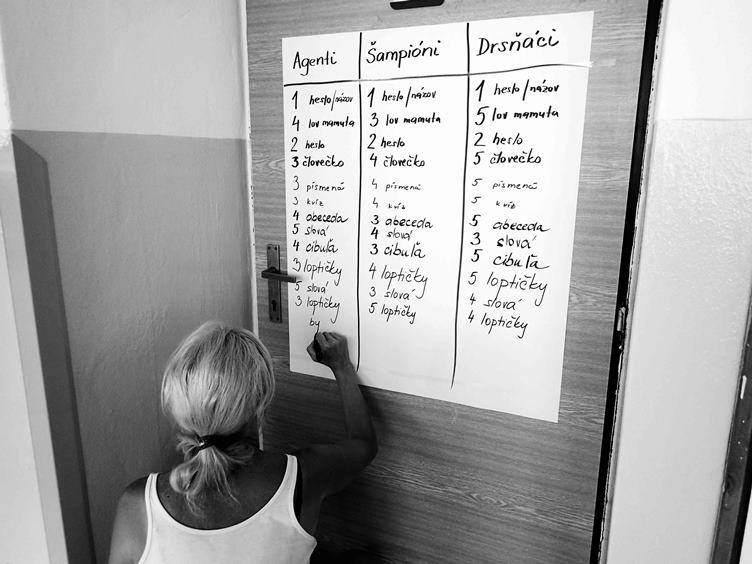 Agenti
1 heslo/názov
4 lov mamuta
2 heslo
3 človečko
3 písmená
3 kvíz
4 abeceda
5 slová
4 cibuľa
3 loptičky
5 slová
3 loptičky
by
Šampióni
1 heslo/názov
3 lov mamuta
2 heslo
4 človečko
4 písmená
4 kvíz
3 abeceda
4 slová
3 cibuľa
4 loptičky
3 slová
5 loptičky
Drsňáci
1 heslo/názov
5 lov mamuta
2 heslo
5 človečko
5 písmená
5 kvíz
5 abeceda
3 slová
5 cibuľa
5 loptičky
4 slová
4 loptičky